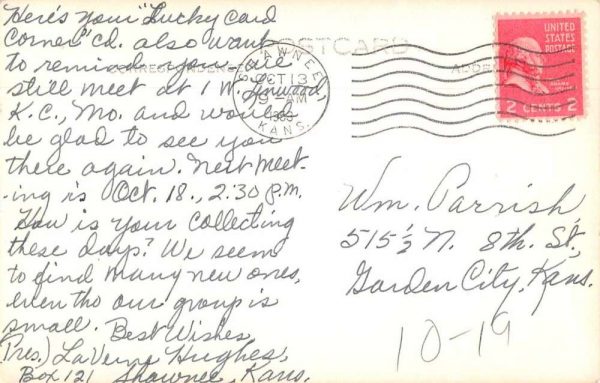 Here's your "Lucky Card
Corner" cd. also want
to remind you, we
still meet at 1 W. Linwood
K.C., Mo. and would
be glad to see you
there again. Next Meet-
-ing is Oct. 18., 2:30 P.M.
How is your collecting
these days? We seem
to find many new ones,
even tho our group is
small. Best Wishes
Pres.) LaVerne Hughes,
Box 121 Shawnee, Kans.
POSTCARD
CORRESPONDENCE
ADDRESS
SHAWNEE
OCT 13
9 AM
KANS.
UNITED
STATES
POSTAGE
2 CENTS 2
Wm. Parrish,
515½ N. 8th. St,
Garden City, Kans.
10-19